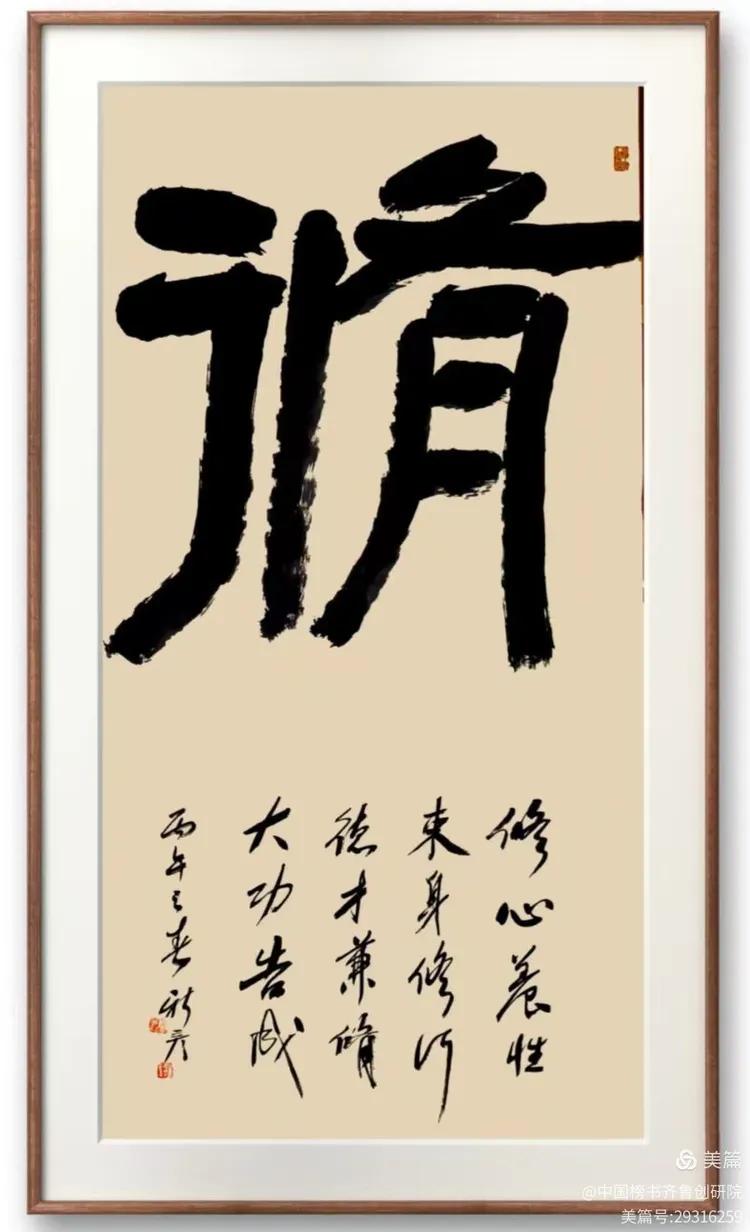 脩
修心養性
束身修行
德才兼脩
大功告成
丙午之春 新彦
美篇
@中国榜书齐鲁创研院
美篇号:29316259